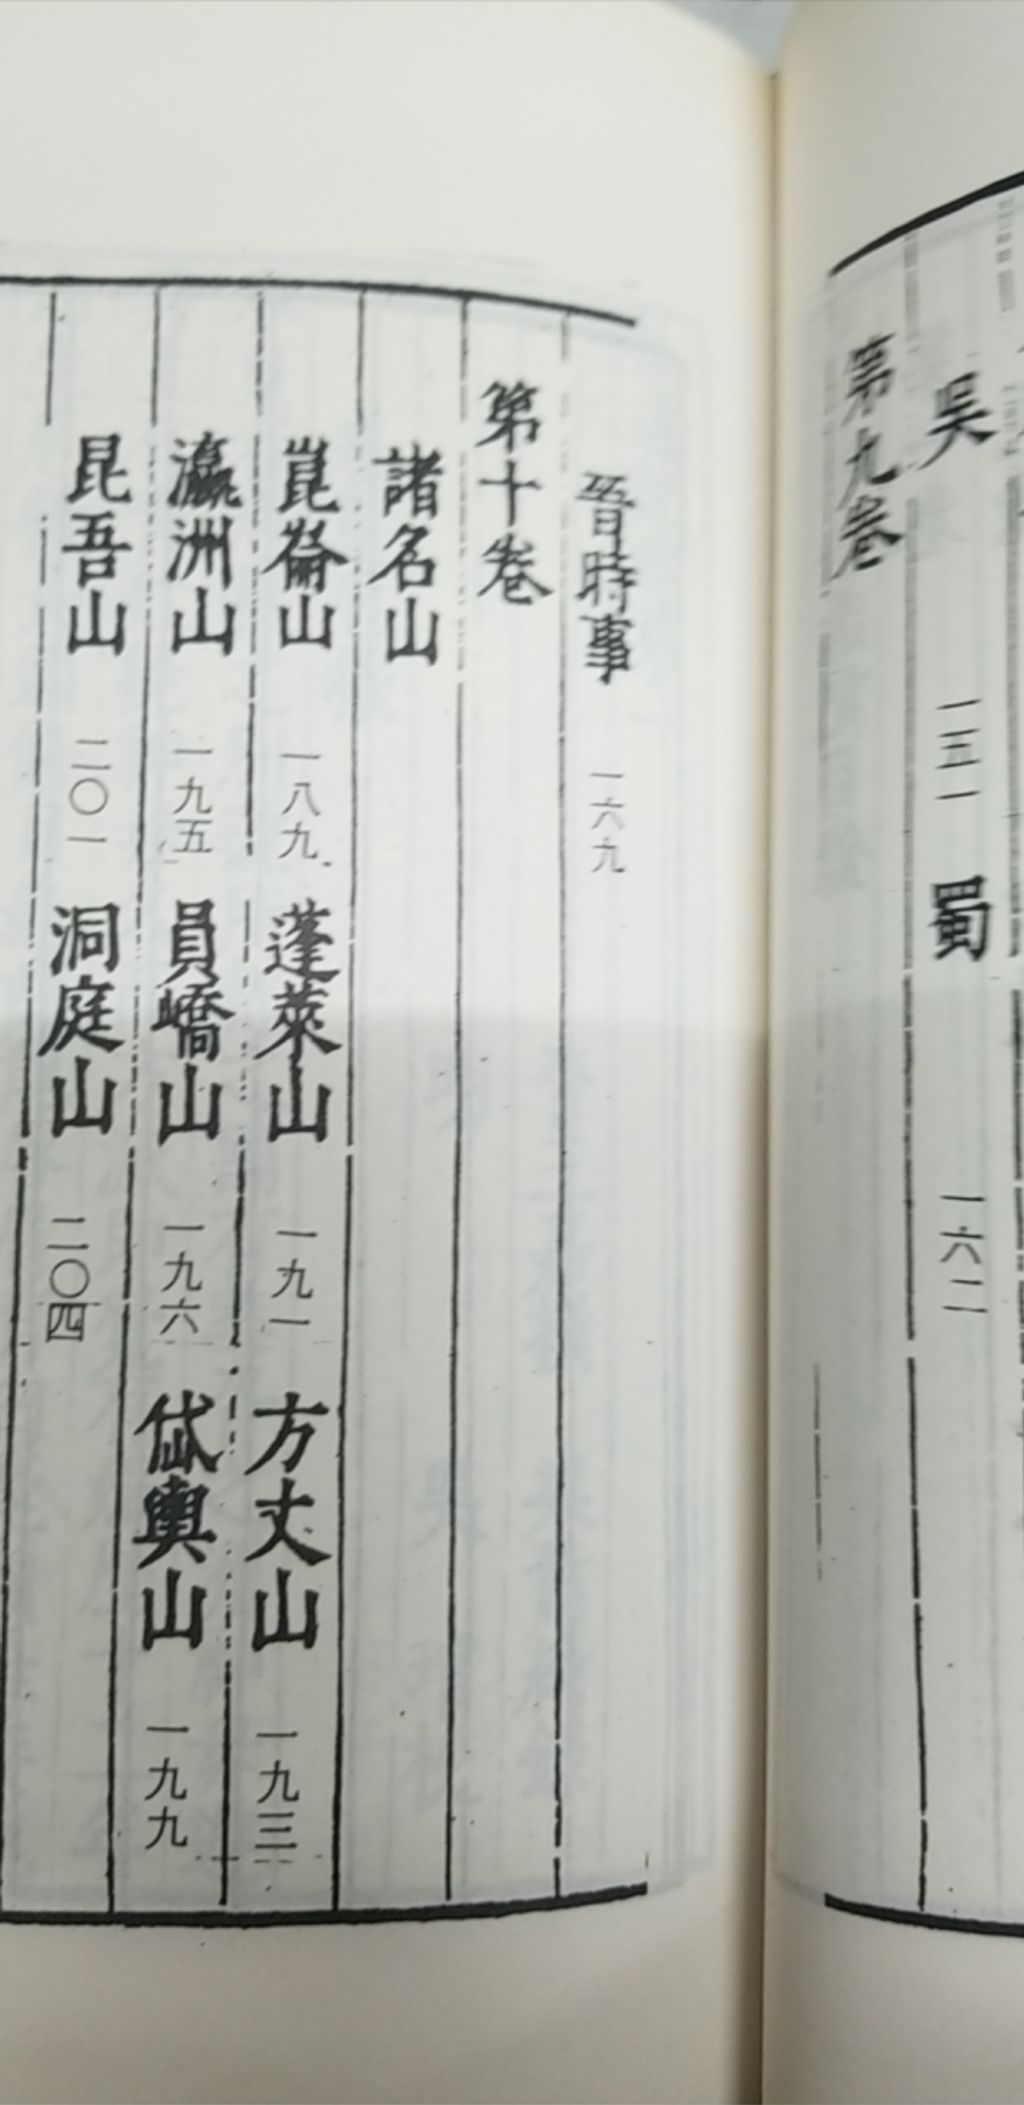 吳 一五一 蜀 一六二
第九卷
晉時事 一六九
第十卷
諸名山
崑崙山 一八九 蓬萊山 一九一 方丈山 一九三
瀛洲山 一九五 員嶠山 一九六 岱輿山 一九九
昆吾山 二〇一 洞庭山 二〇四